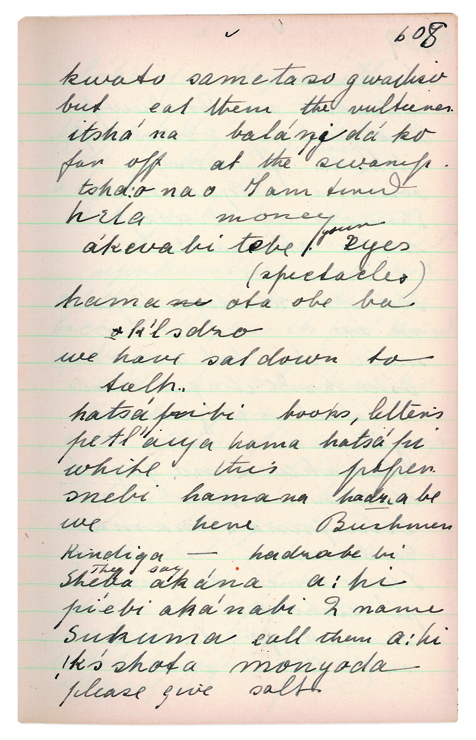 608
kwato sametaso gwadiso
but eat them the vultures.
itshá na balángidá ko
far off at the swamp.
tsha:o nao I am tired
hela money
ákwabi tebe your eyes
(spectacles)
hama ota obe ba
k'lsdzo
we have sat down to
talk.
hatsápibi books, letters
petl'áuya hama hatsápi
white this paper
snebi hamana hadzabe
we here Bushmen
Kindiga — hadzabe bi
They say
Sheba akána a:hi
piebi akánabi 2 name
Sukuma call them a:hi
!k's shota monyoda
please give salt.